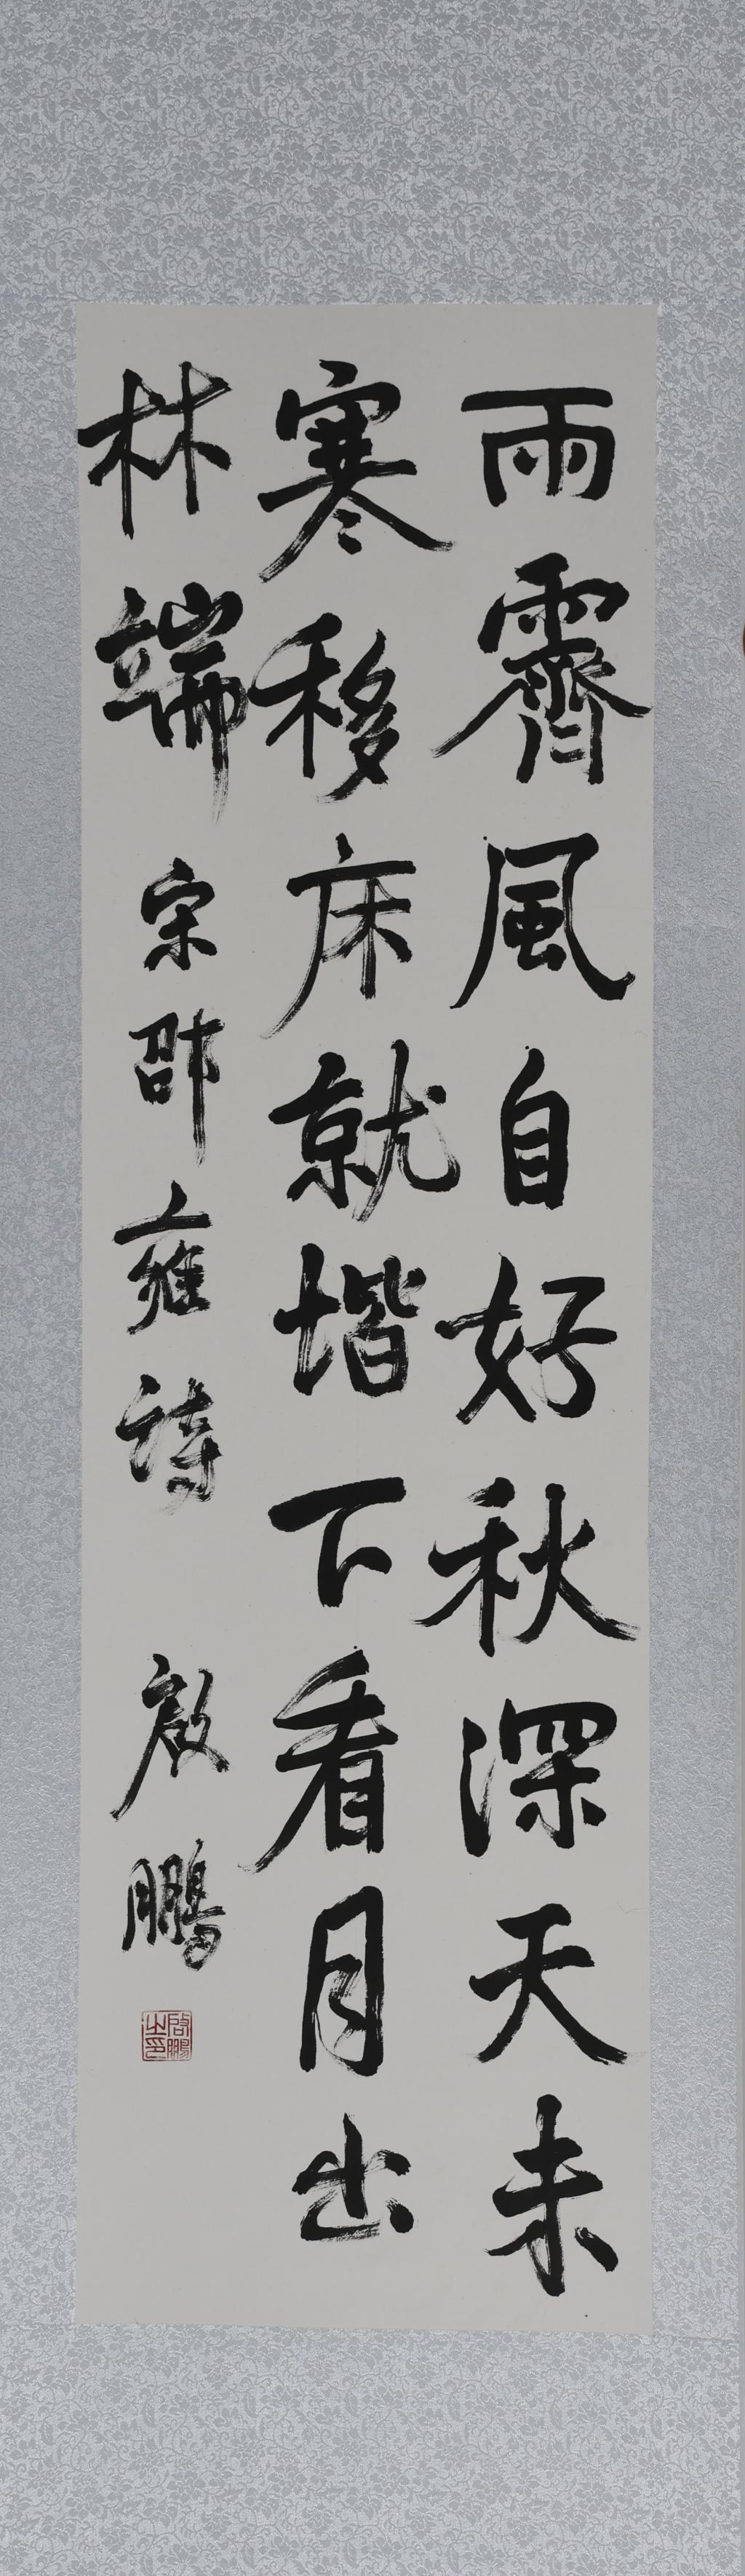 雨霽風自好秋深天未
寒移床就堦下看月出
林端
宋邵雍詩
啟鵬
啟鵬之印